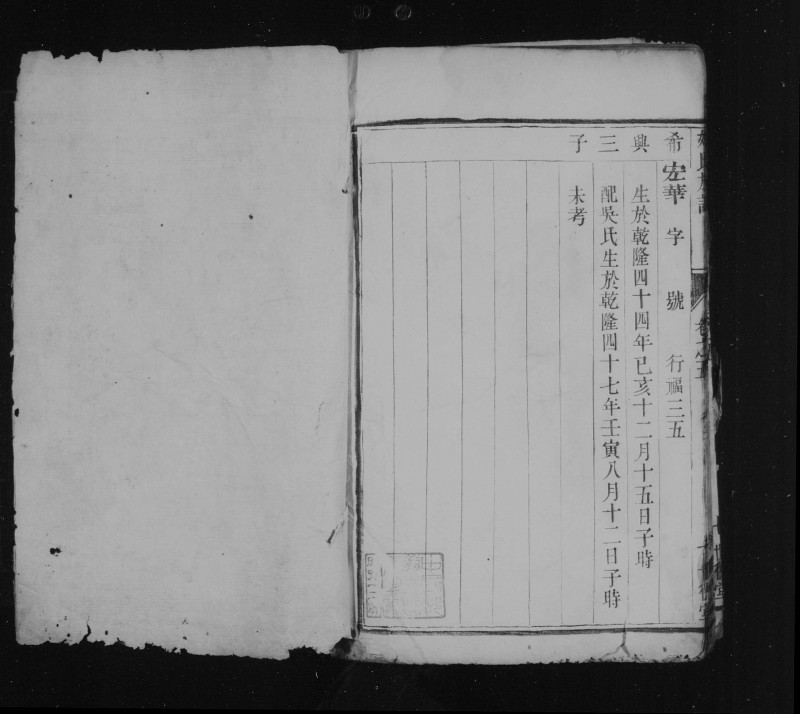 希宏華 字 號 行福三五
興 生於乾隆四十四年己亥十二月十五日子時
三 配吳氏生於乾隆四十七年壬寅八月十二日子時
子 未考